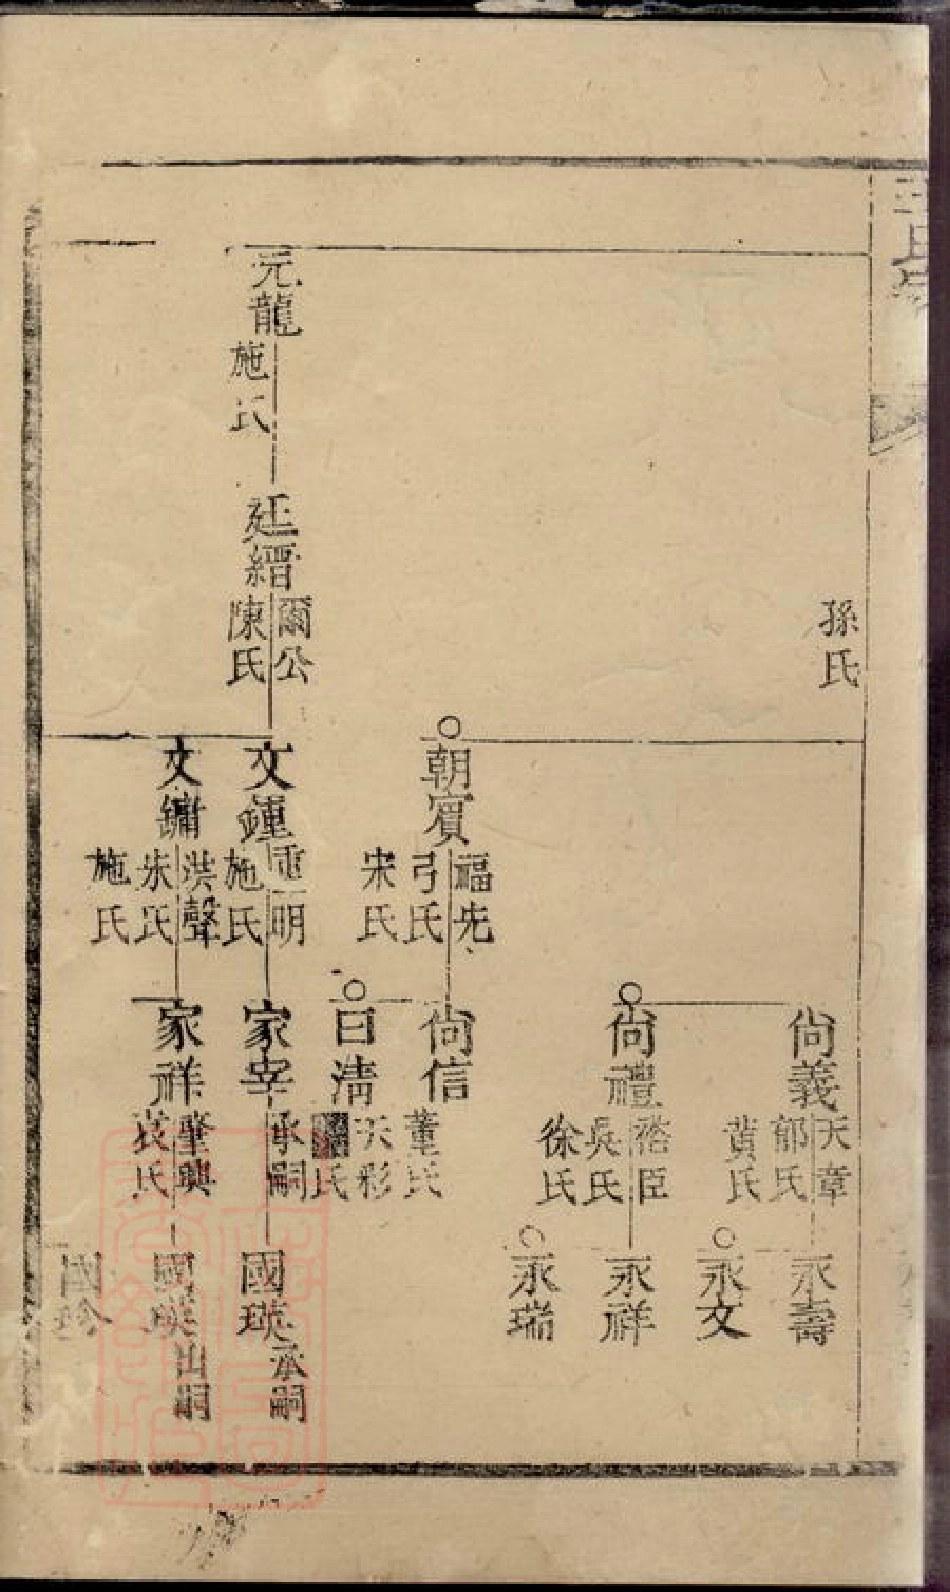 孫氏
尚義
天章
郁氏
黃氏
永壽
永文
尚禮
裕臣
吳氏
徐氏
永祥
永瑞
朝賓
福先
弓氏
宋氏
尚信
董氏
日淸
天彩
氏
元龍
施氏
廷縉
爾公
陳氏
文鍾
重明
施氏
家宰
承嗣
國瑛
承嗣
文鏞
洪聲
朱氏
施氏
家祥
肇興
國瑛
出嗣
國珍